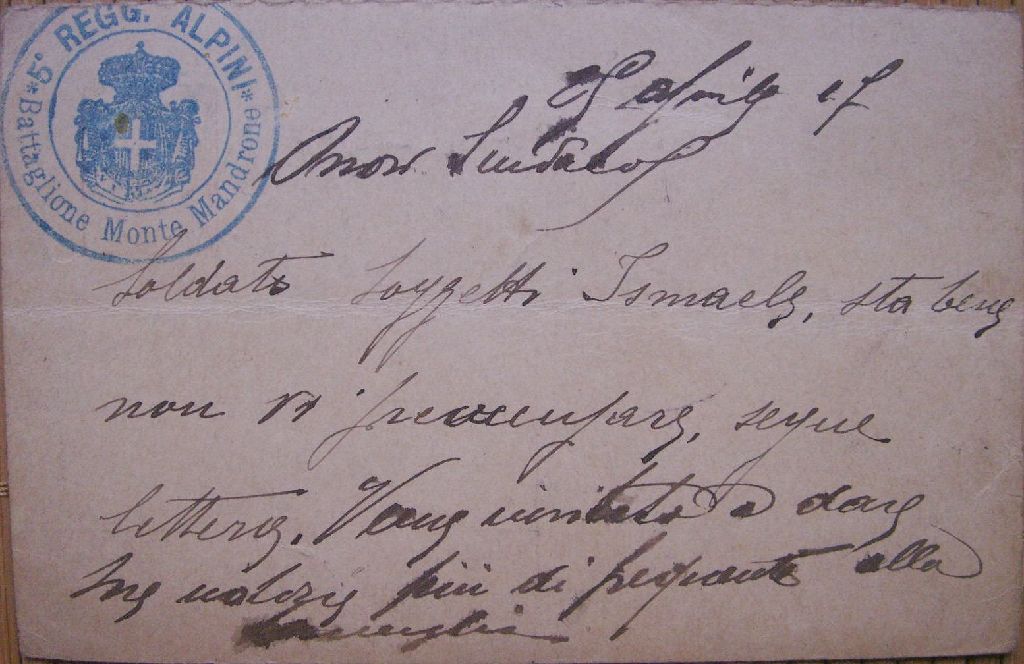 * 5° REGG. ALPINI *
Battaglione Monte Mandrone
Aprile 17
Onor Sindaco
Soldato Soggetti Ismaele, sta bene
non vi preoccupare, segue
lettera. Viene invitato a dare
sue notizie più di frequente alla
famiglia